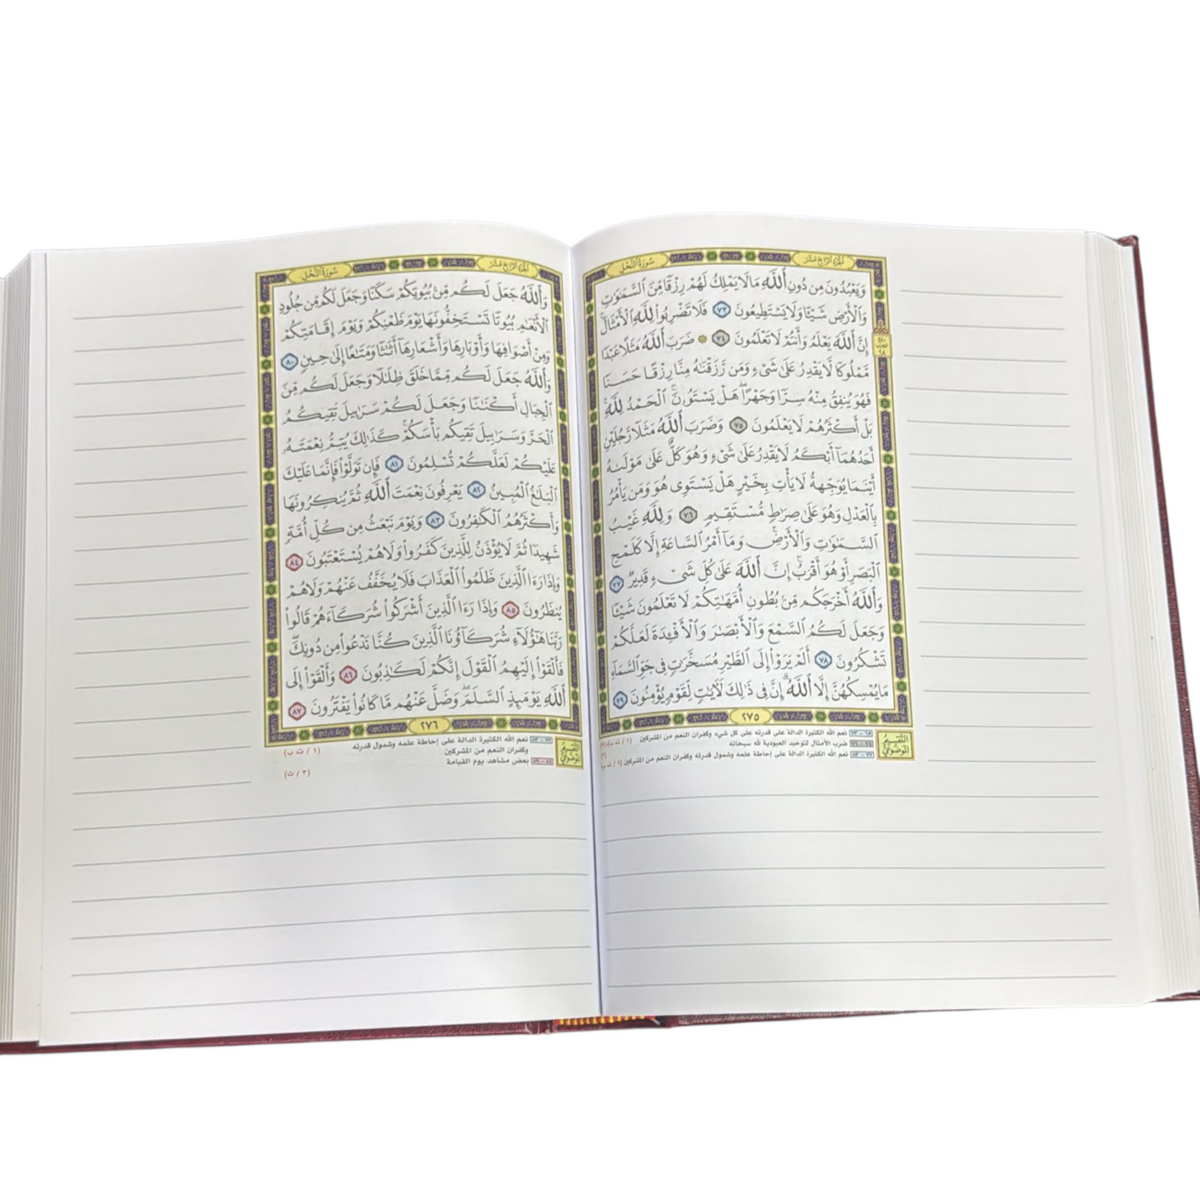 سُورَةُ النَّحْلِ
الجُزْءُ الرَّابِعَ عَشَرَ
وَيَعْبُدُونَ مِن دُونِ ٱللَّهِ مَا لَا يَمْلِكُ لَهُمْ رِزْقًا مِّنَ ٱلسَّمَٰوَٰتِ
وَٱلْأَرْضِ شَيْـًٔا وَلَا يَسْتَطِيعُونَ ٧٣ فَلَا تَضْرِبُوا۟ لِلَّهِ ٱلْأَمْثَالَ
إِنَّ ٱللَّهَ يَعْلَمُ وَأَنتُمْ لَا تَعْلَمُونَ ٧٤ ۞ ضَرَبَ ٱللَّهُ مَثَلًا عَبْدًا
مَّمْلُوكًا لَّا يَقْدِرُ عَلَىٰ شَىْءٍ وَمَن رَّزَقْنَٰهُ مِنَّا رِزْقًا حَسَنًا
فَهُوَ يُنفِقُ مِنْهُ سِرًّا وَجَهْرًا ۖ هَلْ يَسْتَوُۥنَ ۚ ٱلْحَمْدُ لِلَّهِ ۚ
بَلْ أَكْثَرُهُمْ لَا يَعْلَمُونَ ٧٥ وَضَرَبَ ٱللَّهُ مَثَلًا رَّجُلَيْنِ
أَحَدُهُمَآ أَبْكَمُ لَا يَقْدِرُ عَلَىٰ شَىْءٍ وَهُوَ كَلٌّ عَلَىٰ مَوْلَىٰهُ
أَيْنَمَا يُوَجِّههُّ لَا يَأْتِ بِخَيْرٍ ۖ هَلْ يَسْتَوِى هُوَ وَمَن يَأْمُرُ
بِٱلْعَدْلِ ۙ وَهُوَ عَلَىٰ صِرَٰطٍ مُّسْتَقِيمٍ ٧٦ وَلِلَّهِ غَيْبُ
ٱلسَّمَٰوَٰتِ وَٱلْأَرْضِ ۚ وَمَآ أَمْرُ ٱلسَّاعَةِ إِلَّا كَلَمْحِ
ٱلْبَصَرِ أَوْ هُوَ أَقْرَبُ ۚ إِنَّ ٱللَّهَ عَلَىٰ كُلِّ شَىْءٍ قَدِيرٌ ٧٧
وَٱللَّهُ أَخْرَجَكُم مِّنۢ بُطُونِ أُمَّهَٰتِكُمْ لَا تَعْلَمُونَ شَيْـًٔا
وَجَعَلَ لَكُمُ ٱلسَّمْعَ وَٱلْأَبْصَٰرَ وَٱلْأَفْـِٔدَةَ ۙ لَعَلَّكُمْ
تَشْكُرُونَ ٧٨ أَلَمْ يَرَوْا۟ إِلَى ٱلطَّيْرِ مُسَخَّرَٰتٍ فِى جَوِّ ٱلسَّمَآءِ
مَا يُمْسِكُهُنَّ إِلَّا ٱللَّهُ ۗ إِنَّ فِى ذَٰلِكَ لَءَايَٰتٍ لِّقَوْمٍ يُؤْمِنُونَ ٧٩
٢٧٥
التقسيم الموضوعي
نعم الله الكثيرة الدالة على قدرته على كل شيء وكفران النعم من المشركين
٧٤ - ٧٦ ضرب الأمثال لتوحيد العبودية لله سبحانه
٧٧ - ٨٣ نعم الله الكثيرة الدالة على إحاطة علمه وشمول قدرته وكفران النعم من المشركين
سُورَةُ النَّحْلِ
الجُزْءُ الرَّابِعَ عَشَرَ
وَٱللَّهُ جَعَلَ لَكُم مِّنۢ بُيُوتِكُمْ سَكَنًا وَجَعَلَ لَكُم مِّن جُلُودِ
ٱلْأَنْعَٰمِ بُيُوتًا تَسْتَخِفُّونَهَا يَوْمَ ظَعْنِكُمْ وَيَوْمَ إِقَامَتِكُمْ ۙ
وَمِنْ أَصْوَافِهَا وَأَوْبَارِهَا وَأَشْعَارِهَآ أَثَٰثًا وَمَتَٰعًا إِلَىٰ حِينٍ ٨٠
وَٱللَّهُ جَعَلَ لَكُم مِّمَّا خَلَقَ ظِلَٰلًا وَجَعَلَ لَكُم مِّنَ
ٱلْجِبَالِ أَكْنَٰنًا وَجَعَلَ لَكُمْ سَرَٰبِيلَ تَقِيكُمُ
ٱلْحَرَّ وَسَرَٰبِيلَ تَقِيكُم بَأْسَكُمْ ۚ كَذَٰلِكَ يُتِمُّ نِعْمَتَهُۥ
عَلَيْكُمْ لَعَلَّكُمْ تُسْلِمُونَ ٨١ فَإِن تَوَلَّوْا۟ فَإِنَّمَا عَلَيْكَ
ٱلْبَلَٰغُ ٱلْمُبِينُ ٨٢ يَعْرِفُونَ نِعْمَتَ ٱللَّهِ ثُمَّ يُنكِرُونَهَا
وَأَكْثَرُهُمُ ٱلْكَٰفِرُونَ ٨٣ وَيَوْمَ نَبْعَثُ مِن كُلِّ أُمَّةٍ
شَهِيدًا ثُمَّ لَا يُؤْذَنُ لِلَّذِينَ كَفَرُوا۟ وَلَا هُمْ يُسْتَعْتَبُونَ ٨٤
وَإِذَا رَءَا ٱلَّذِينَ ظَلَمُوا۟ ٱلْعَذَابَ فَلَا يُخَفَّفُ عَنْهُمْ وَلَا هُمْ
يُنظَرُونَ ٨٥ وَإِذَا رَءَا ٱلَّذِينَ أَشْرَكُوا۟ شُرَكَآءَهُمْ قَالُوا۟
رَبَّنَا هَٰٓؤُلَآءِ شُرَكَآؤُنَا ٱلَّذِينَ كُنَّا نَدْعُوا۟ مِن دُونِكَ ۖ
فَأَلْقَوْا۟ إِلَيْهِمُ ٱلْقَوْلَ إِنَّكُمْ لَكَٰذِبُونَ ٨٦ وَأَلْقَوْا۟ إِلَى
ٱللَّهِ يَوْمَئِذٍ ٱلسَّلَمَ ۖ وَضَلَّ عَنْهُم مَّا كَانُوا۟ يَفْتَرُونَ ٨٧
٢٧٦
التقسيم الموضوعي
٧٧ - ٨٣ نعم الله الكثيرة الدالة على إحاطة علمه وشمول قدرته
وكفران النعم من المشركين
بعض مشاهد يوم القيامة